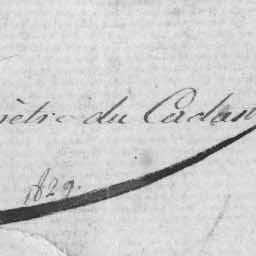 mètre du Cadan
1829.